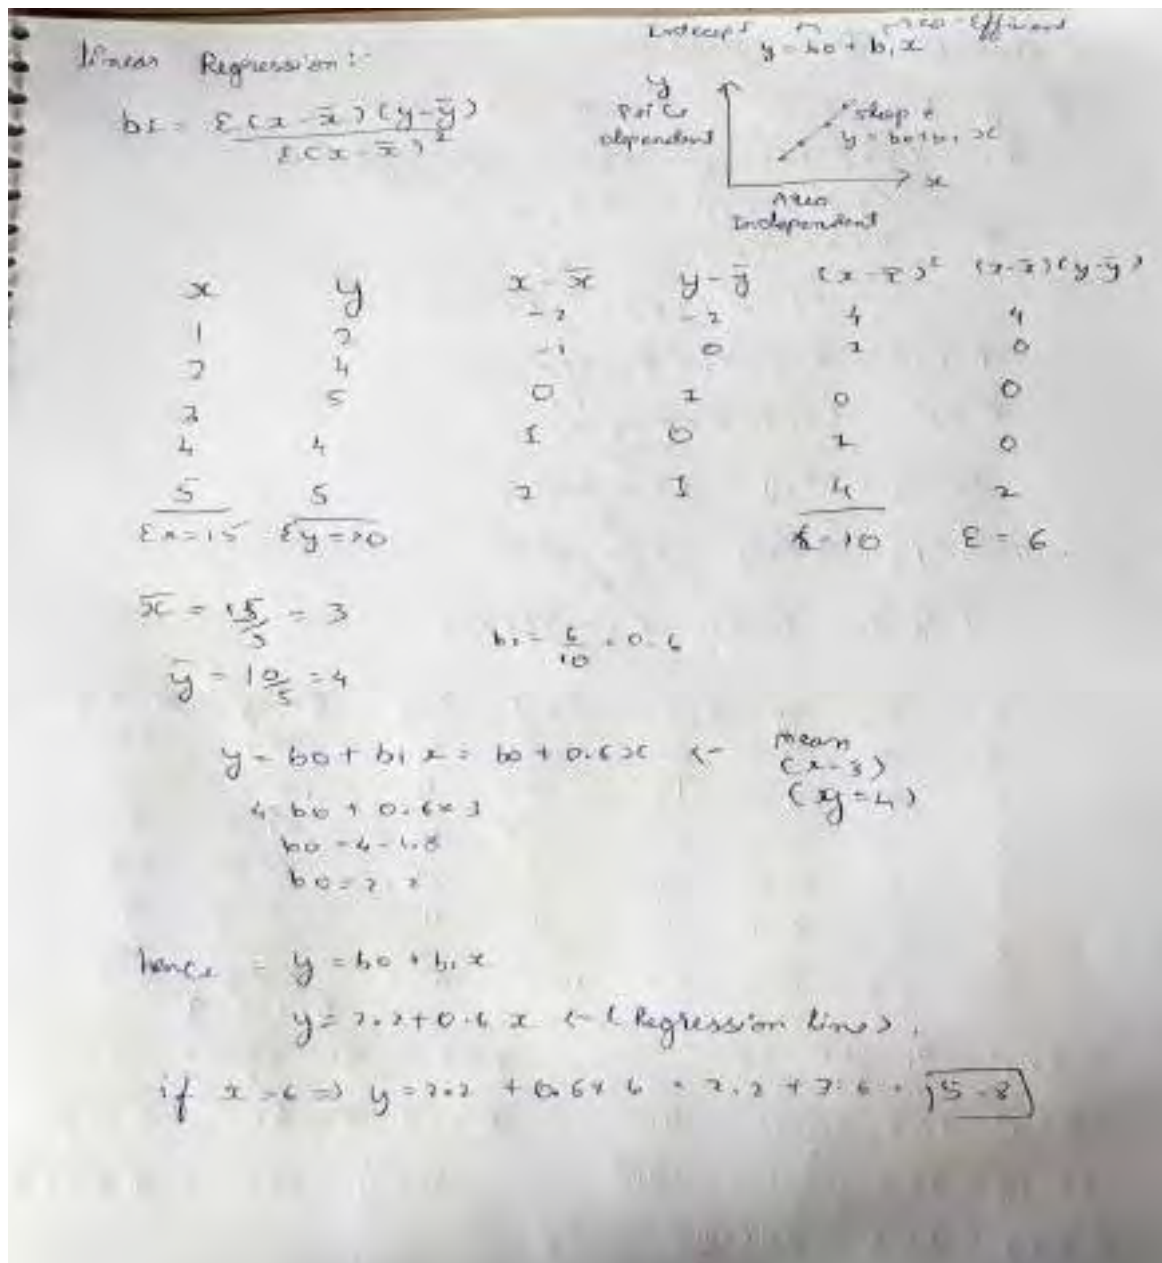 Linear Regression:-
Intercept co-Efficient
y = b0 + b1x
b1 = Σ(x - x̄)(y - ȳ)
Σ(x - x̄)²
y
Price
dependent
y = b0 + b1 x
x
Area
Independent
x y x - x̄ y - ȳ (x - x̄)² (x - x̄)(y - ȳ)
1 2 -2 -2 4 4
2 4 -1 0 1 0
3 5 0 1 0 0
4 4 1 0 1 0
5 5 2 1 4 2
Σx = 15 Σy = 20 Σ = 10 Σ = 6
x̄ = 15/5 = 3
b1 = 6/10 = 0.6
ȳ = 10/5 = 4
y = b0 + b1 x = b0 + 0.6x ← mean
(x = 3)
(y = 4)
4 = b0 + 0.6x3
b0 = 4 - 1.8
b0 = 2.2
hence = y = b0 + b1 x
y = 2.2 + 0.6 x ← (Regression line).
if x = 6 => y = 2.2 + 0.6x6 = 2.2 + 3.6 = 5.8